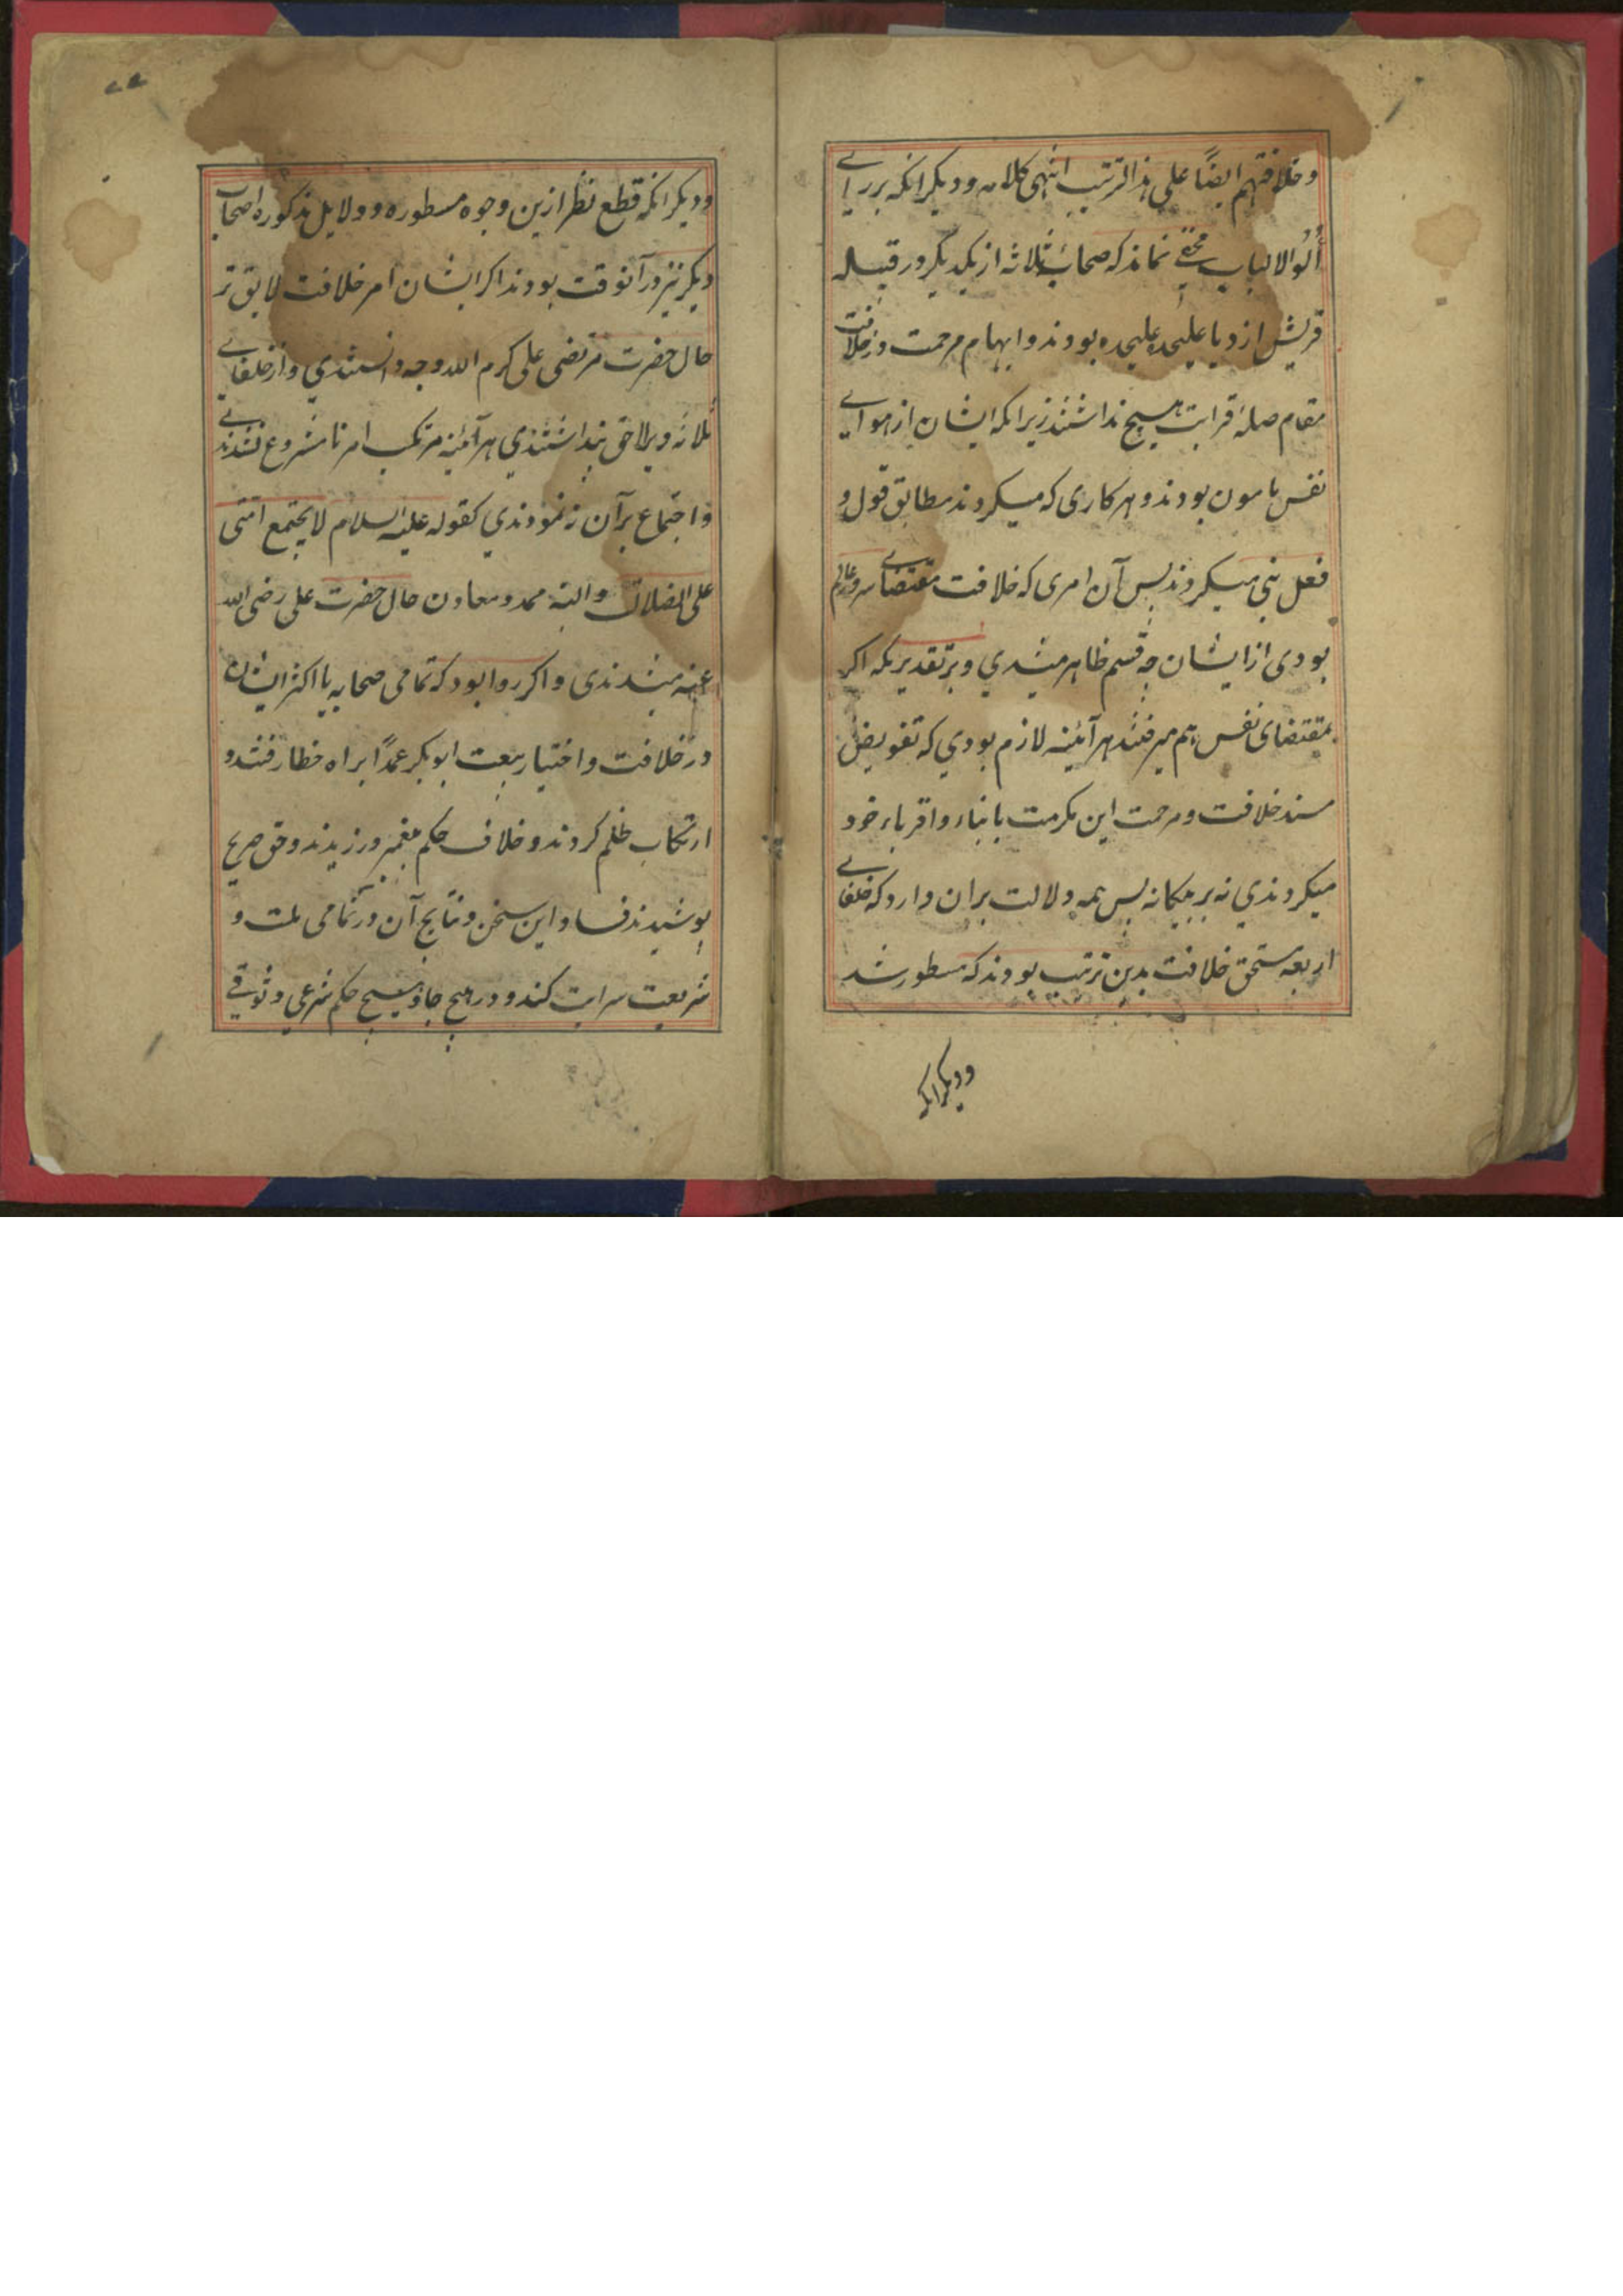 وخلافتهم ایضاً علی هذا الترتیب انتهی کلامه ودیکر انکه بر رای
اُلُوالالباب مخفی نماند که صحابه ثلاثه از یکدیکر در قبیله
قریش از دیا علیحده علیحده بودند وابهام مرحمت در خلافت
مقام صلهٔ قرابت هیچ نداشتند زیرا که ایشان از هوای
نفس مامون بودند و هر کاری که میکردند مطابق قول و
فعل نبی میکردند پس آن امری که خلاف مقتضای سرور عالم
بودی از ایشان چه قسم ظاهر میشدی و بر تقدیریکه اکر
بمقتضای نفس هم میرفتند هر آئینه لازم بودی که تفویض
مسند خلافت و مرحمت این مکرمت بابناء و اقرباء خود
میکردندی نه بر بیکانه پس همه دلالت بران دارد که خلفای
اربعه مستحق خلافت بدین ترتیب بودند که مسطور شد
ودیکر انکه
ودیکر انکه قطع نظر ازین وجوه مسطوره و دلایل مذکوره اصحاب
دیکر نیز در آنوقت بودند اکر ایشان امر خلافت لایق تر
حال حضرت مرتضی علی کرم الله وجهه دانستندی و از خلفای
ثلاثه ویرا احق پنداشتندی هر آئینه مرتکب امر نامشروع نشدندی
و اجتماع برآن نه نمودندی کقوله علیه السلام لا یجتمع امتی
علی الضلالت و البته ممد و معاون حال حضرت علی رضی الله
عنه میشدندی و اکر روا بود که تمامی صحابه یا اکثر ایشان
در خلافت و اختیار بیعت ابوبکر عمداً براه خطا رفتند و
ارتکاب ظلم کردند و خلاف حکم پیغمبر ورزیدند و حق صریح
پوشیدند فساد این سخن و نتایج آن در تمامی ملت و
شریعت سرایت کند و در هیچ جا و هیچ حکم شرعی وثوقی